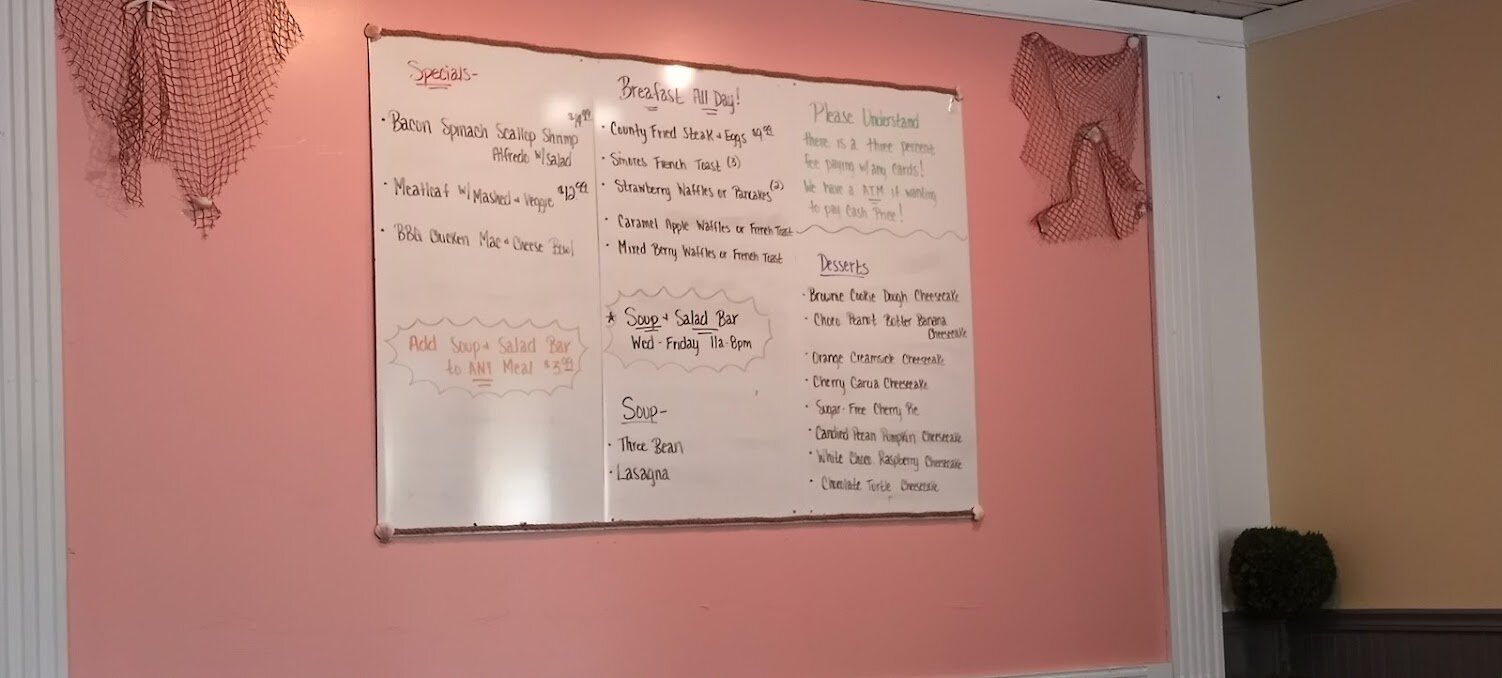 Specials-
• Bacon Spinach Scallop Shrimp
Alfredo w/ Salad
• Meatloaf w/ Mashed + Veggie $12.99
• BBQ Chicken Mac + Cheese Bowl
Add Soup + Salad Bar
to ANY Meal $3.99
Breafast All Day!
• County Fried Steak + Eggs $9.99
• Smores French Toast (3)
• Strawberry Waffles or Pancakes (2)
• Caramel Apple Waffles or French Toast
• Mixed Berry Waffles or French Toast
* Soup + Salad Bar
Wed - Friday 11a-8pm
Soup-
• Three Bean
• Lasagna
Please Understand
there is a three percent
fee paying w/ any cards!
We have a ATM if wanting
to pay Cash Price!
Desserts
• Brownie Cookie Dough Cheesecake
• Choco Peanut Butter Banana
Cheesecake
• Orange Creamsicle Cheesecake
• Cherry Garcia Cheesecake
• Sugar-Free Cherry Pie
• Candied Pecan Pumpkin Cheesecake
• White Choco Raspberry Cheesecake
• Chocolate Turtle Cheesecake